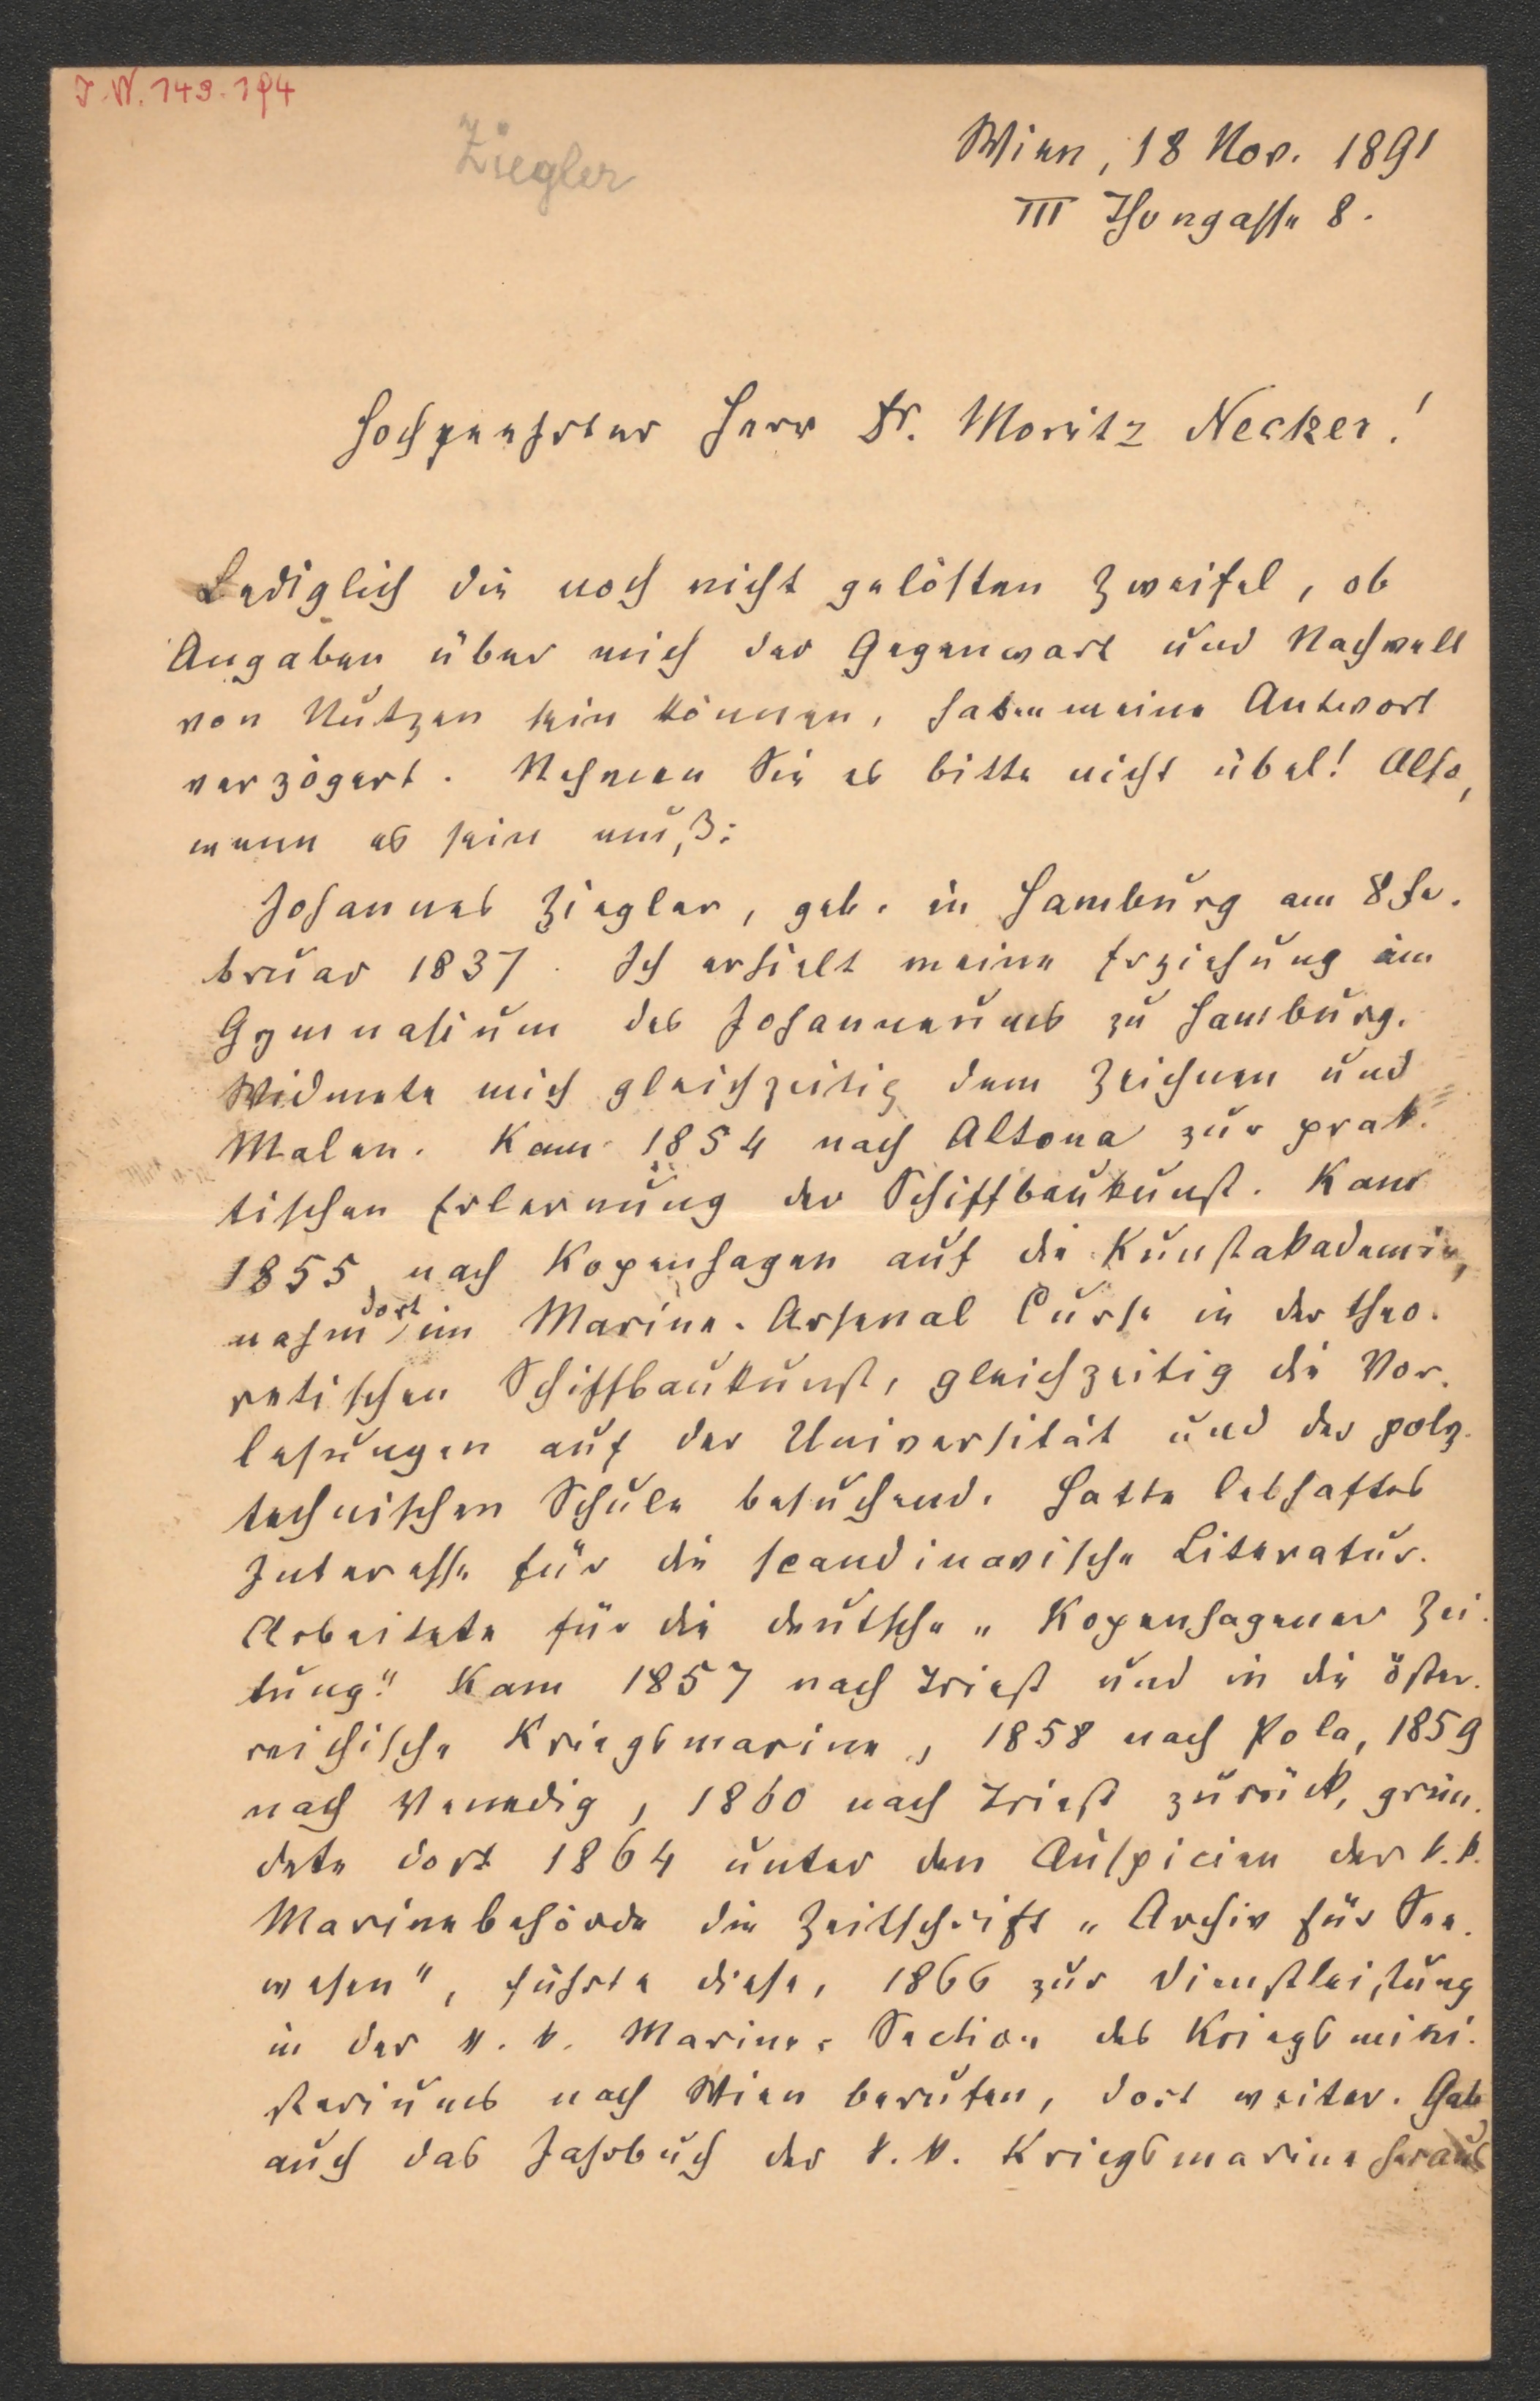 I.N. 149.194
Ziegler
Wien, 18 Nov. 1891
III Thongasse 8.
Hochgeehrter Herr Dr. Moritz Necker!
Lediglich die noch nicht gelösten Zweifel, ob
Angaben über mich der Gegenwart und Nachwelt
von Nutzen sein können, haben meine Antwort
verzögert. Nehmen Sie es bitte nicht übel! Also,
wenn es sein muß:
Johannes Ziegler, geb. in Hamburg am 8 Fe-
bruar 1837. Ich erhielt meine Erziehung im
Gymnasium des Johanneums zu Hamburg.
Widmete mich gleichzeitig dem Zeichnen und
Malen. Kam 1854 nach Altona zur prak-
tischen Erlernung der Schiffbaukunst. Kam
1855 nach Kopenhagen auf die Kunstakademie,
nahm dort im Marine-Arsenal Curse in der theo-
retischen Schiffbaukunst, gleichzeitig die Vor-
lesungen auf der Universität und der poly-
technischen Schule besuchend. Hatte lebhaftes
Interesse für die scandinavische Literatur.
Arbeitete für die deutsche „Kopenhagener Zei-
tung". Kam 1857 nach Triest und in die öster-
reichische Kriegsmarine, 1858 nach Pola, 1859
nach Venedig, 1860 nach Triest zurück, grün-
dete dort 1864 unter den Auspicien der k.k.
Marinebehörde die Zeitschrift „Archiv für See-
wesen", führte diese, 1866 zur Dienstleistung
in der k. k. Marine-Section des Kriegsmini-
steriums nach Wien berufen, dort weiter. Gab
auch das Jahrbuch der k. k. Kriegsmarine heraus